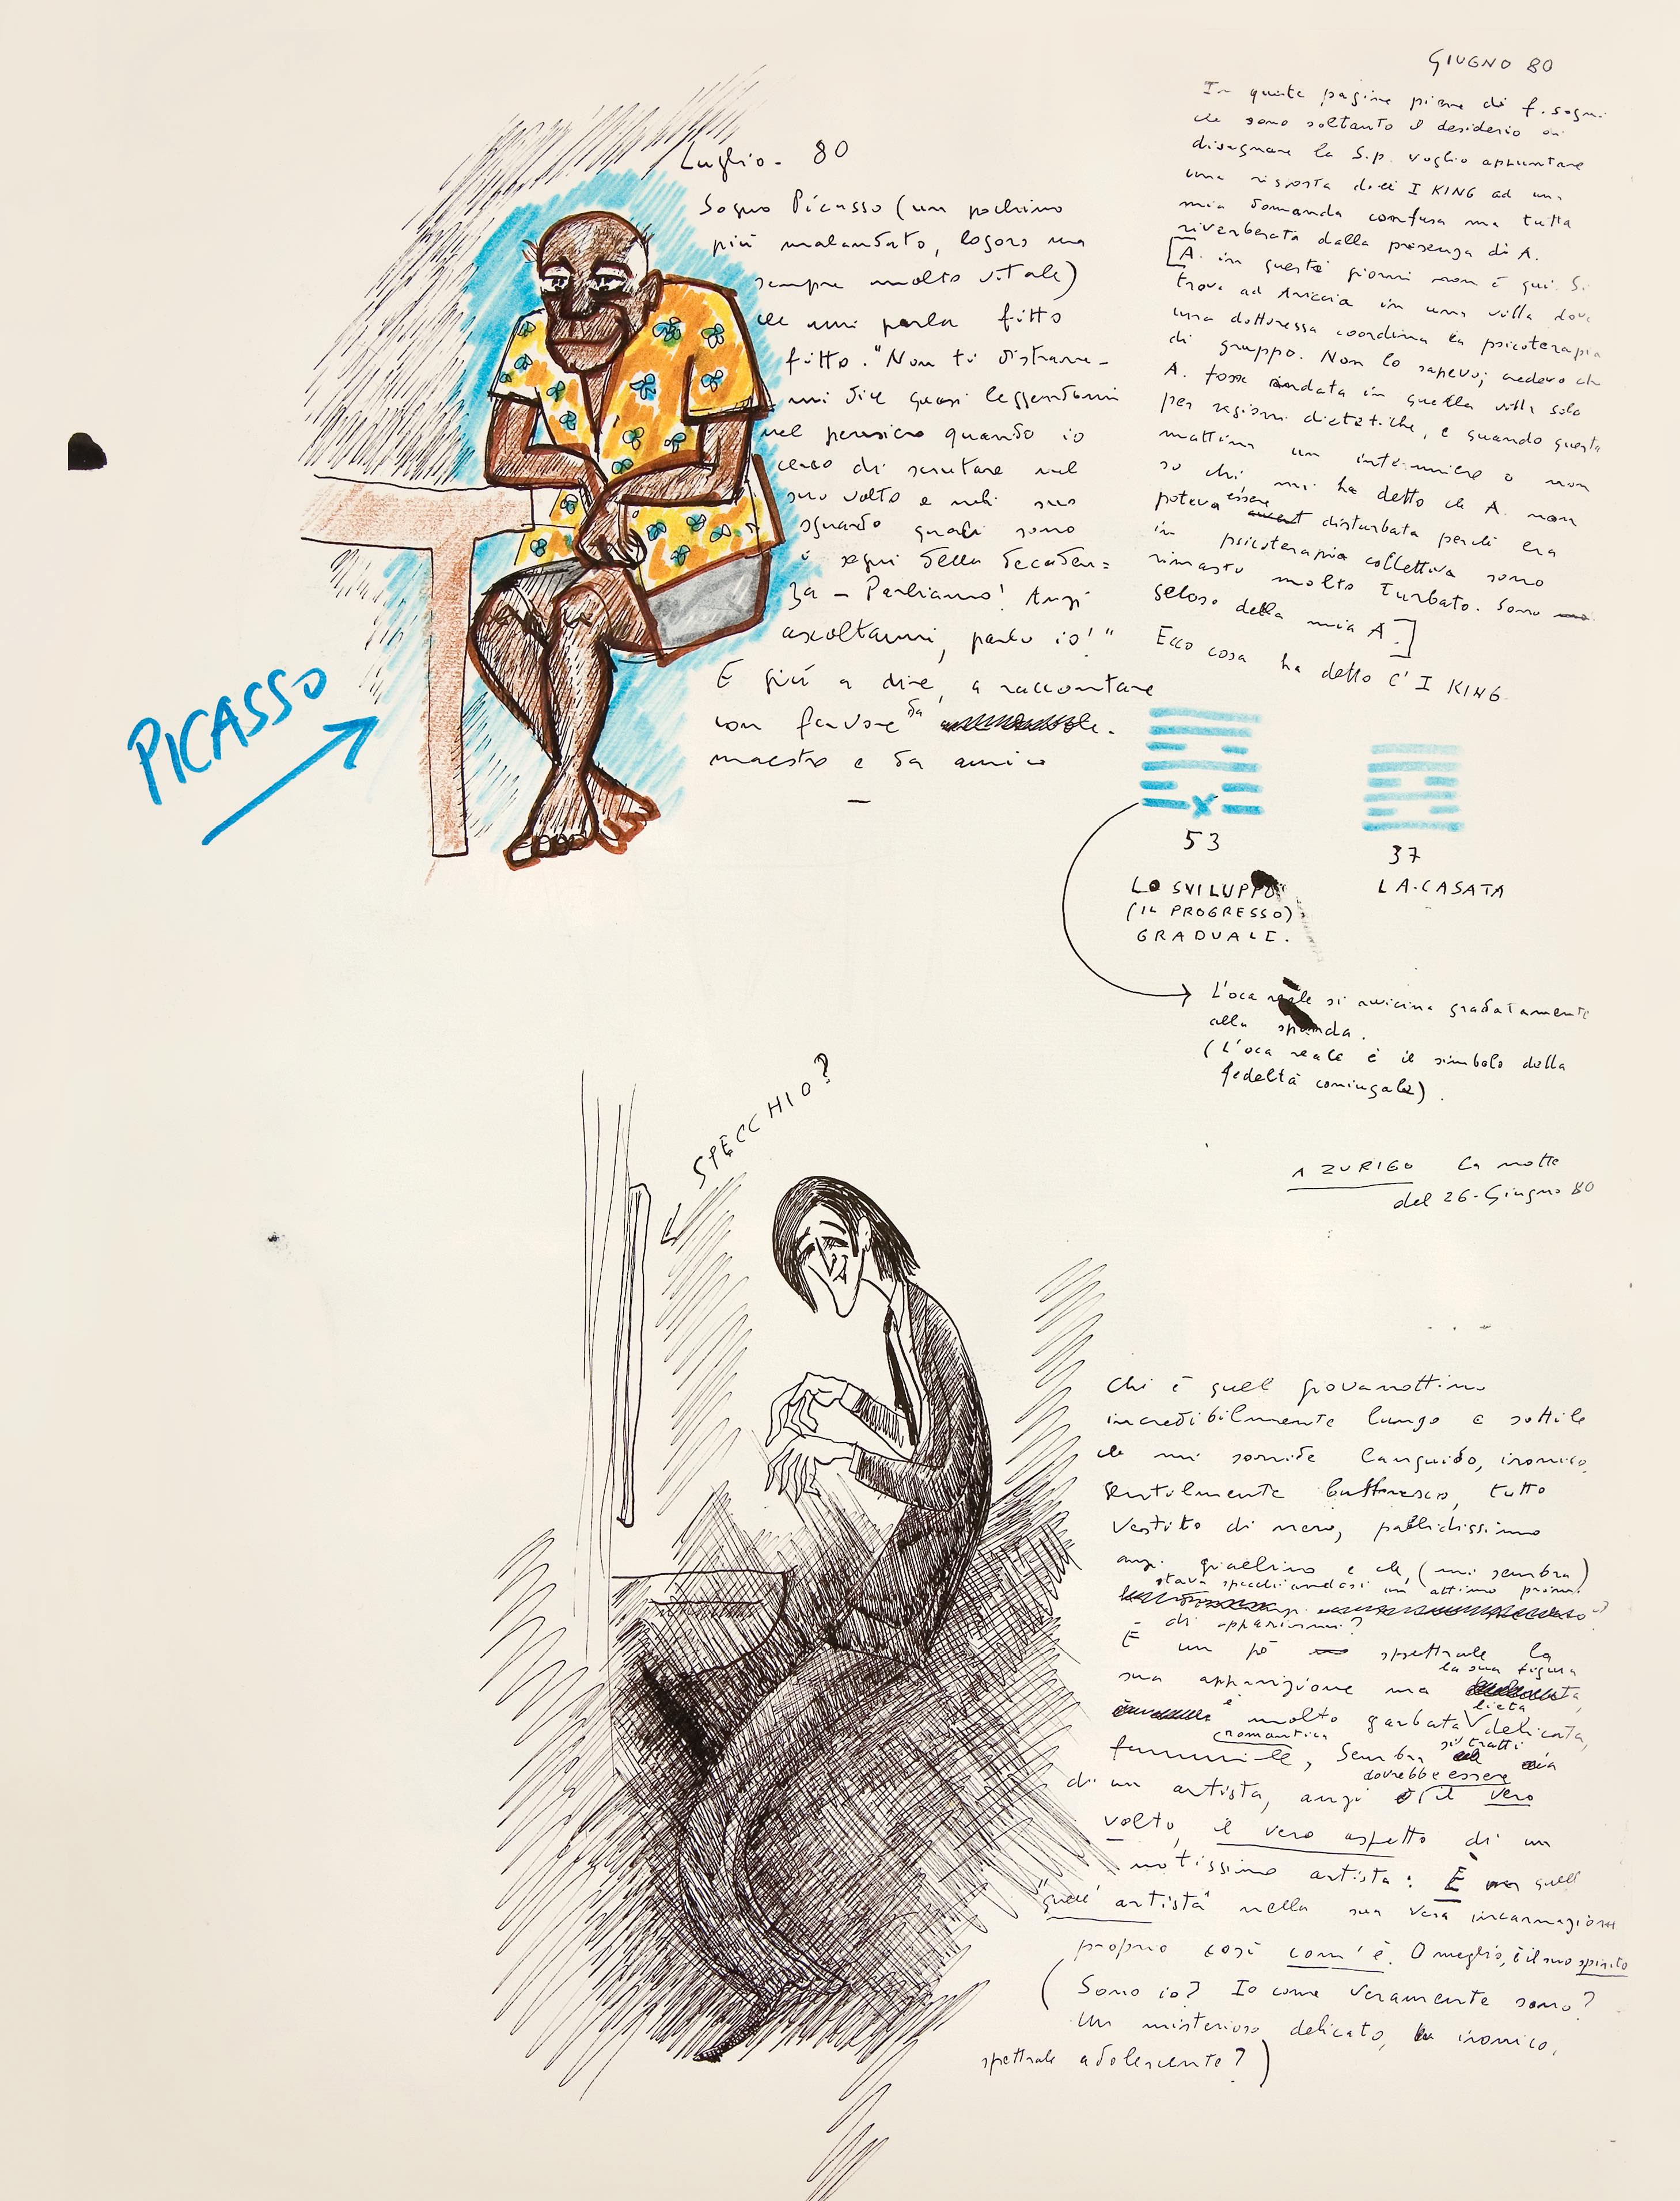 GIUGNO 80
In queste pagine piene di f. sogni
che sono soltanto il desiderio di
disegnare la S.p. voglio appuntare
una risposta dell'I KING ad una
mia domanda confusa ma tutta
riverberata dalla presenza di A.
[A. in questi giorni non è qui. Si
trova ad Ariccia in una villa dove
una dottoressa coordina la psicoterapia
di gruppo. Non lo sapevo; credevo che
A. fosse andata in quella villa solo
per ragioni dietetiche, e quando questa
mattina un infermiere o non
so chi mi ha detto che A. non
poteva essere disturbata perché era
in psicoterapia collettiva sono
rimasto molto turbato. Sono
geloso della mia A.]
Ecco cosa ha detto l'I KING
53
LO SVILUPPO
(IL PROGRESSO)
GRADUALE.
37
LA CASATA
L'oca reale si avvicina gradatamente
alla sponda.
(L'oca reale è il simbolo della
fedeltà coniugale).
Luglio - 80
Sogno Picasso (un pochino
più malandato, logoro ma
sempre molto vitale)
che mi parla fitto
fitto. "Non ti distrarre -
mi dice quasi leggendomi
nel pensiero quando io
cerco di scrutare nel
suo volto e nel suo
sguardo quali sono
i segni della decaden=
za - Parliamo! Anzi
ascoltami, parlo io!"
E giù a dire, a raccontare
con fervore da
maestro e da amico
PICASSO
SPECCHIO?
A ZURIGO la notte
del 26 - Giugno 80
Chi è quel giovanottino
incredibilmente lungo e sottile
che mi sorride languido, ironico,
gentilmente buffonesco, tutto
vestito di nero, pallidissimo
anzi giallino e che, (mi sembra)
stava specchiandosi un attimo prima
di apparirmi?
È un pò spettrale la
sua apparizione ma la sua figura
è molto garbata, lieta delicata,
femminile, (romantica) Sembra si tratti
di un artista, anzi dovrebbe essere il vero
volto, il vero aspetto di un
notissimo artista: È quell
"quell'artista" nella sua vera incarnazione
proprio così com'è. O meglio, è il suo spirito
(Sono io? Io come veramente sono?
Un misterioso delicato, ironico,
spettrale adolescente?)